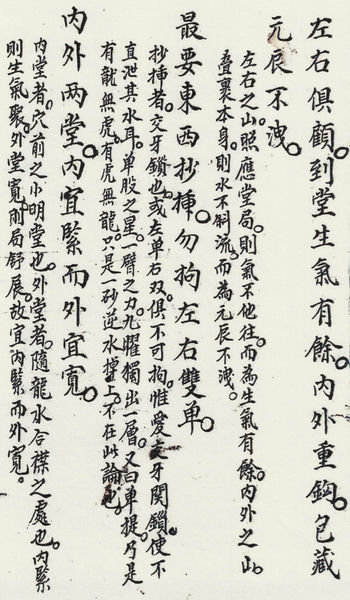 左右俱顧。到堂生氣有餘。內外重鈎。包藏
元辰不洩。
左右之山。照應堂局。則氣不他往。而為生氣有餘。內外之山。
叠裹本身。則水不斜流。而為元辰不洩。
最要東西抄揷。勿拘左右雙單。
抄揷者。交牙鎖也。或左單右双。俱不可拘。惟愛交牙関鎖。使不
直泄其水耳。單股之星。一臂之力。九曜獨出一層。又曰單提。乃是
有龍無虎。有虎無龍。只是一砂逆水掉上。不在此論也。
內外两堂。內宜緊而外宜寬。
內堂者。穴前之小明堂也。外堂者。隨龍水合襟之處也。內緊
則生氣聚。外堂寬。則局舒展。故宜內緊而外寬。